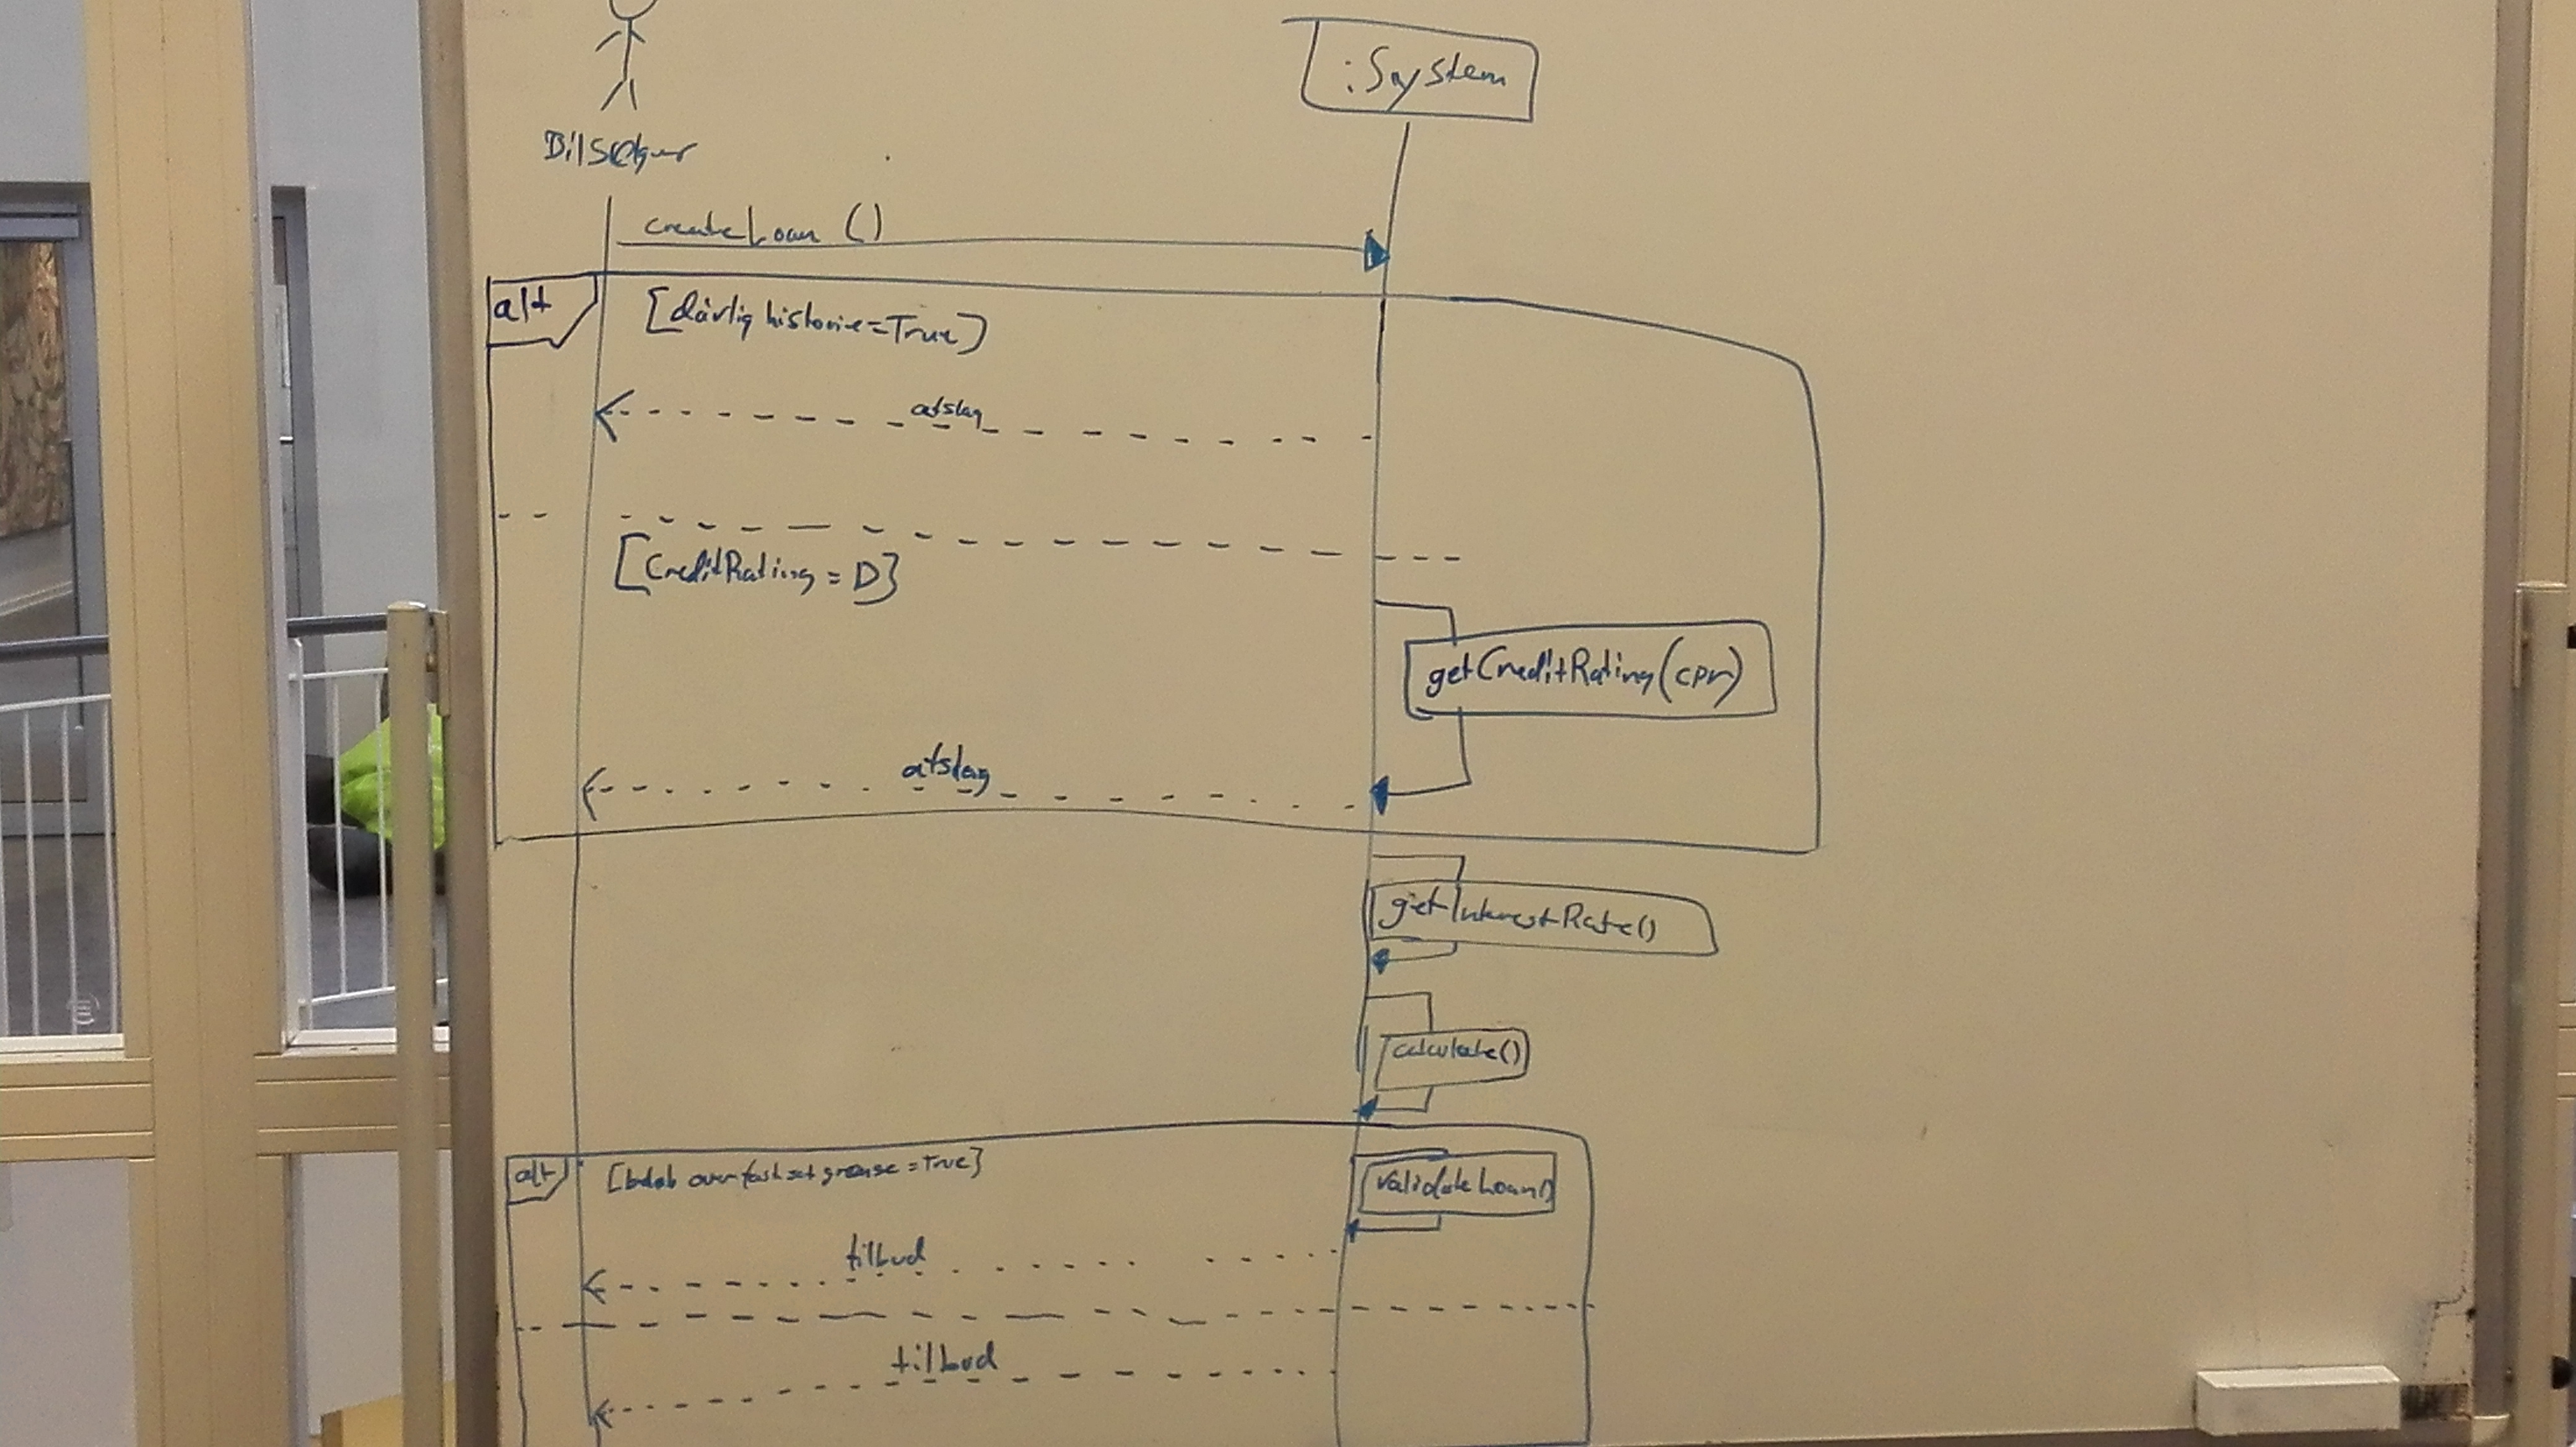 :System
Bilsælger
createLoan ()
alt
[dårlig historie=True]
afslag
[CreditRating = D]
getCreditRating(cpr)
afslag
getInterestRate()
calculate()
alt
[beløb over fastsat grænse = True]
validateLoan()
tilbud
tilbud